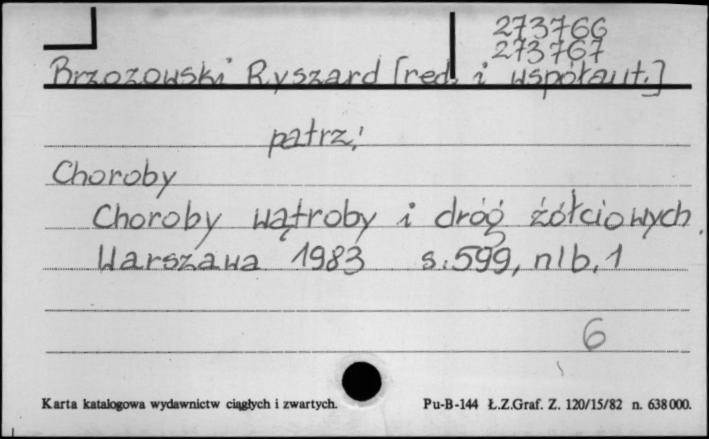 273766
273767
Brzozowski Ryszard [red. i współaut.]
patrz:
Choroby
Choroby wątroby i dróg żółciowych.
Warszawa 1983 s. 599, nlb. 1
6
Karta katalogowa wydawnictw ciągłych i zwartych. Pu-B-144 Ł.Z.Graf. Z. 120/15/82 n. 638000.